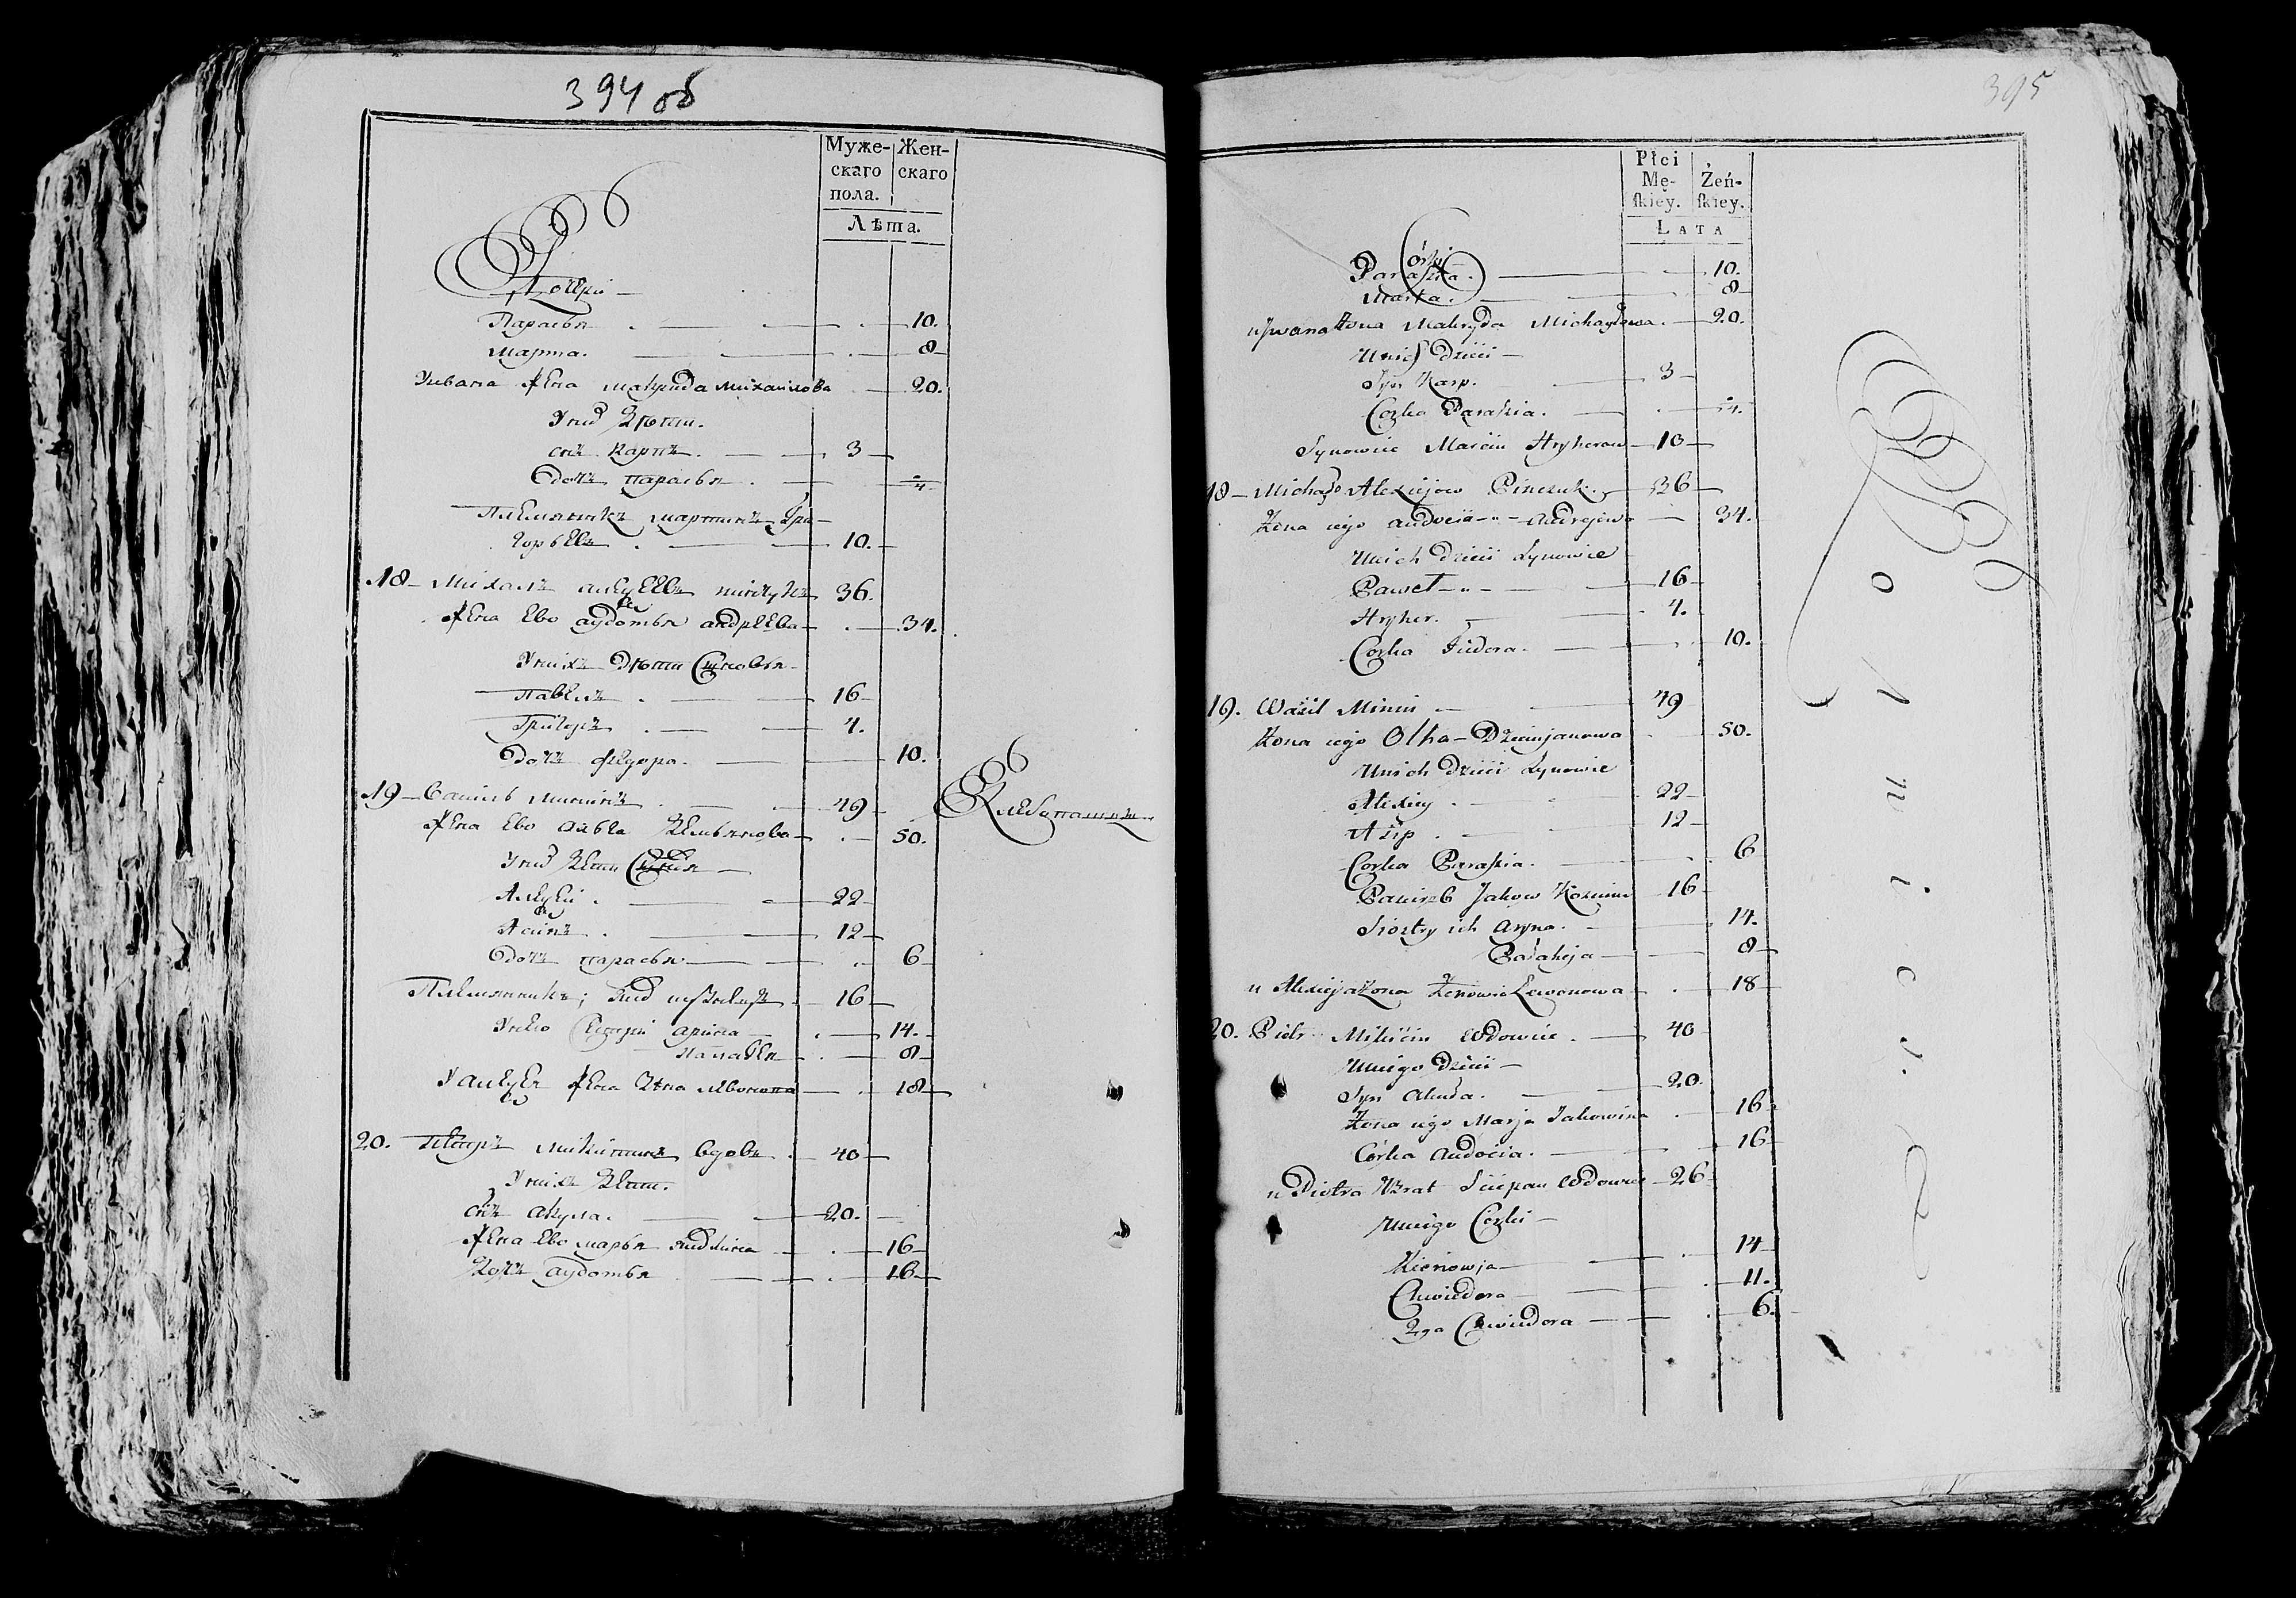 394 об
Муже-
скаго
пола.
Жен-
скаго
Лѣта.
Дочери
Парасья 10.
Марта. 8
Ивана жена Макрида Михайлова 20.
У них Дѣти.
снъ Карпъ. 3
Дочъ Парасья
Племянникъ Мартинъ Гри-
горьевъ 10.
18 Михалъ Алексеевъ Пинчукъ 36.
Жена Ево Аудотья Андреева 34.
У нихъ Дѣти Сыновья
Павелъ 16
Григоръ 4.
Дочъ Федора. 10.
19 Василь Мининъ 49
Жена Ево Ольга Демьянова 50.
У них Дети
Алексей 22
Асипъ 12
Дочъ Парасья 6
Племянникъ 16
У нево Сестры Арина 14.
8
У Алексея Жена 18
20. Петръ Микитинъ вдовъ 40
У нихъ Дети.
снъ Акула. 20.
Жена Ево Марья 16
Дочъ Аудотья 16
395
Płci
Mę-
skiey.
Żeń-
skiey.
LATA
Córki
Paraska. 10.
Marta. 8
u Jwana Żona Makryda Michayłowa. 20.
Unich Dzieci
Syn Karp. 3
Corka Paraskia.
Synowiec Marcin Hryherow 10
18 Michayło Alexiejew Pinczuk 36
Żona iego Audocia Andrejewa 34.
Unich Dzieci Synowie
Paweł 16
Hryher. 4.
Corka Fiedora. 10.
19. Wasil Minin 49
Żona iego Olha Dziemjanowa 50.
Unich Dzieci Synowie
Alexiey 22
Asip 12
Corka Paraskia. 6
Pasierzb Jakow 16
Siostry ich Aryna. 14.
8
u Alexieja Żona Lewonowa 18
20. Piotr Mikicin Wdowiec. 40
Uniego Dzieci
Syn Akuła. 20.
Żona iego Marja Jakowina 16
Córka Audocia. 16
u Piotra Brat Sciepan Wdowiec 26
Uniego Corki
14
Chwiedora 11.
2ga Chwiedora 6.